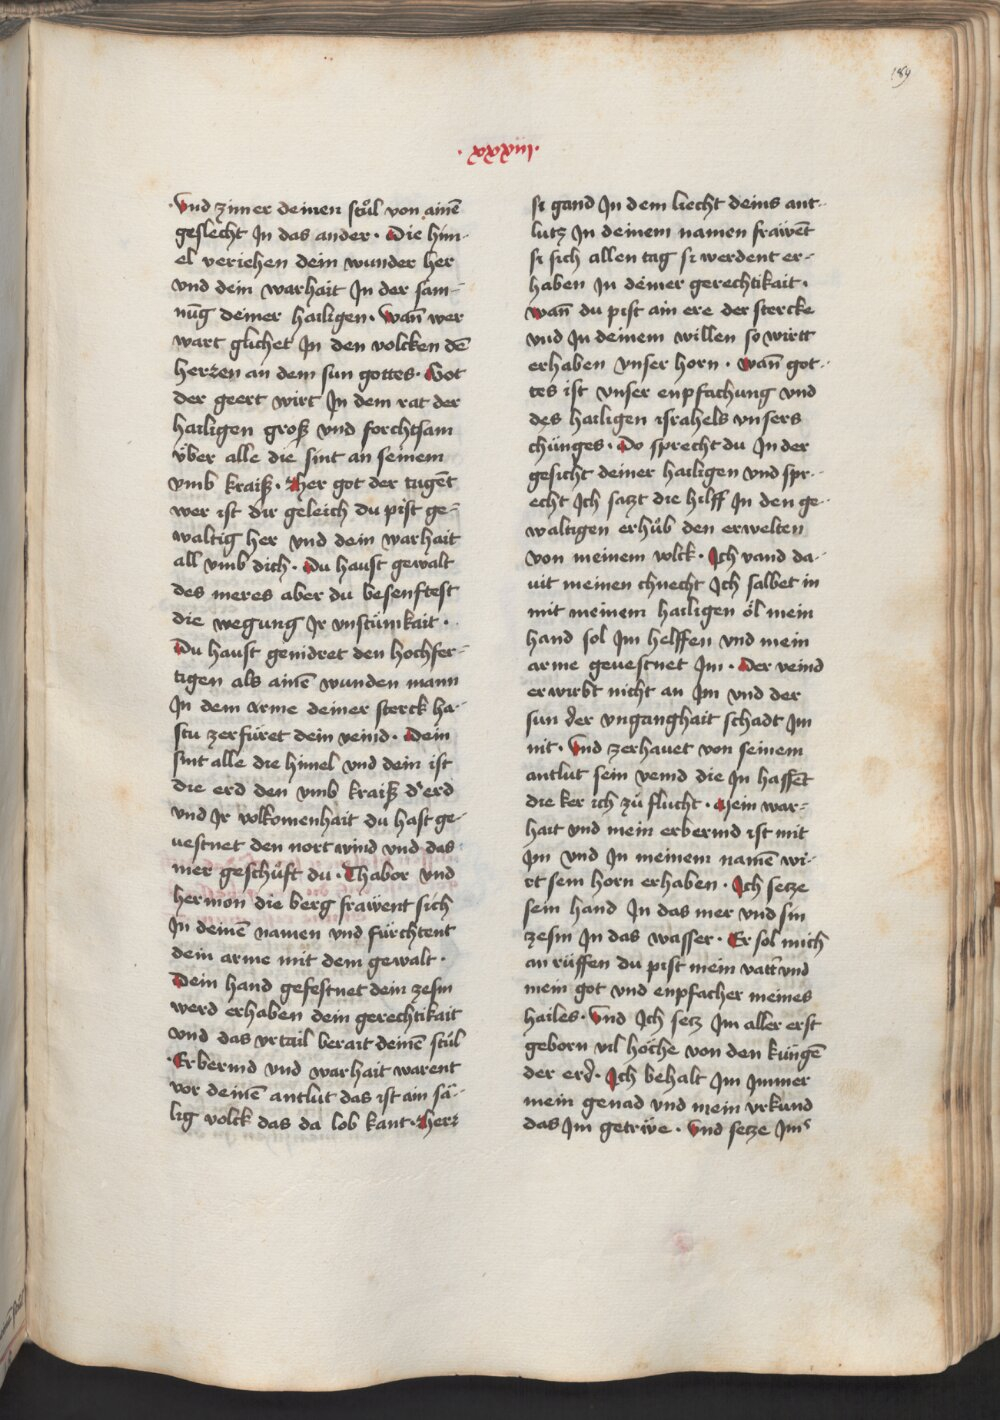 189
·xxxiiii·
Vnd zimer deinen stuͦl von ainē
geslecht In das ander · Die him-
el veriehen dein wunder her
vnd dein warhait In der sam-
nūg deiner hailigen · Wan̄ wer
wart glichet In den wolcken dē
herren an dem sun gottes · Got
der geert wirt In dem rat der
hailigen groß vnd forchtsam
v̈ber alle die sint an seinem
vmb kraiß · Her got der tugēt
wer ist dir geleich du pist ge-
waltig her vnd dein warhait
all vmb dich · Du haust gewalt
des meres aber du besenftest
die wegung Ir vnstümkait ·
Du haust genidret den hochfer-
tigen als ainē wunden mann
In dem arme deiner sterck ha-
stu zerfüret dein veind · Dein
sint alle die himel vnd dein ist
die erd den vmb kraiß d'erd
vnd Ir volkomenhait du hast ge-
uestnet den nort wind vnd das
mer geschüft du · Thabor vnd
hermon die berg fräwent sich
In deinē namen vnd fürchtent
dein arme mit dem gewalt ·
Dein hand gefestnet dein zesm
werd erhaben dein gerechtikait
vnd das vrtail berait deinē stuͦl
· Erbermd vnd warhait warent
vor deinē antlut das ist ain sä-
lig volck das da lob kant · Herr
si gand In dem liecht deins ant-
lutz In deinem namen fräwēt
si sich allen tag si werdent er-
haben In deiner gerechtikait ·
Wan̄ du pist ain ere der stercke
vnd In deinem willen so wirtt
erhaben vnser horn · Wan̄ got-
tes ist vnser enpfachung vnd
des hailigen israhels vnsers
chünges · Do sprecht du In der
gesicht deiner hailigen vnd spr-
echt Ich satzt die hilff In den ge-
waltigen erhuͦb den erwelten
von meinem volck · Ich vand da-
uit meinen chnecht Ich salbet in
mit meinem hailigen öl mein
hand sol Im helffen vnd mein
arme geuestnet Im · Der veind
erwirbt nicht an Im vnd der
sun der vnganghait schadt Im
nit · Vnd zerhauet von seinem
antlut sein veind die In hassēt
die ker ich zuͦ flucht · Mein war-
hait vnd mein erbermd ist mit
Im vnd In meinem namē wi-
rt sein horn erhaben · Ich setze
sein hand In das mer vnd sin
zesm In das wasser · Er sol mich
an rüffen du pist mein vatt' vnd
mein got vnd enpfacher meines
hailes · Vnd Ich setz Im aller erst
geborn vil höche von den küngē
der erd' · Ich behalt Im Immer
mein genad vnd mein vrkund
das Im getrẅe · Vnd setze Im